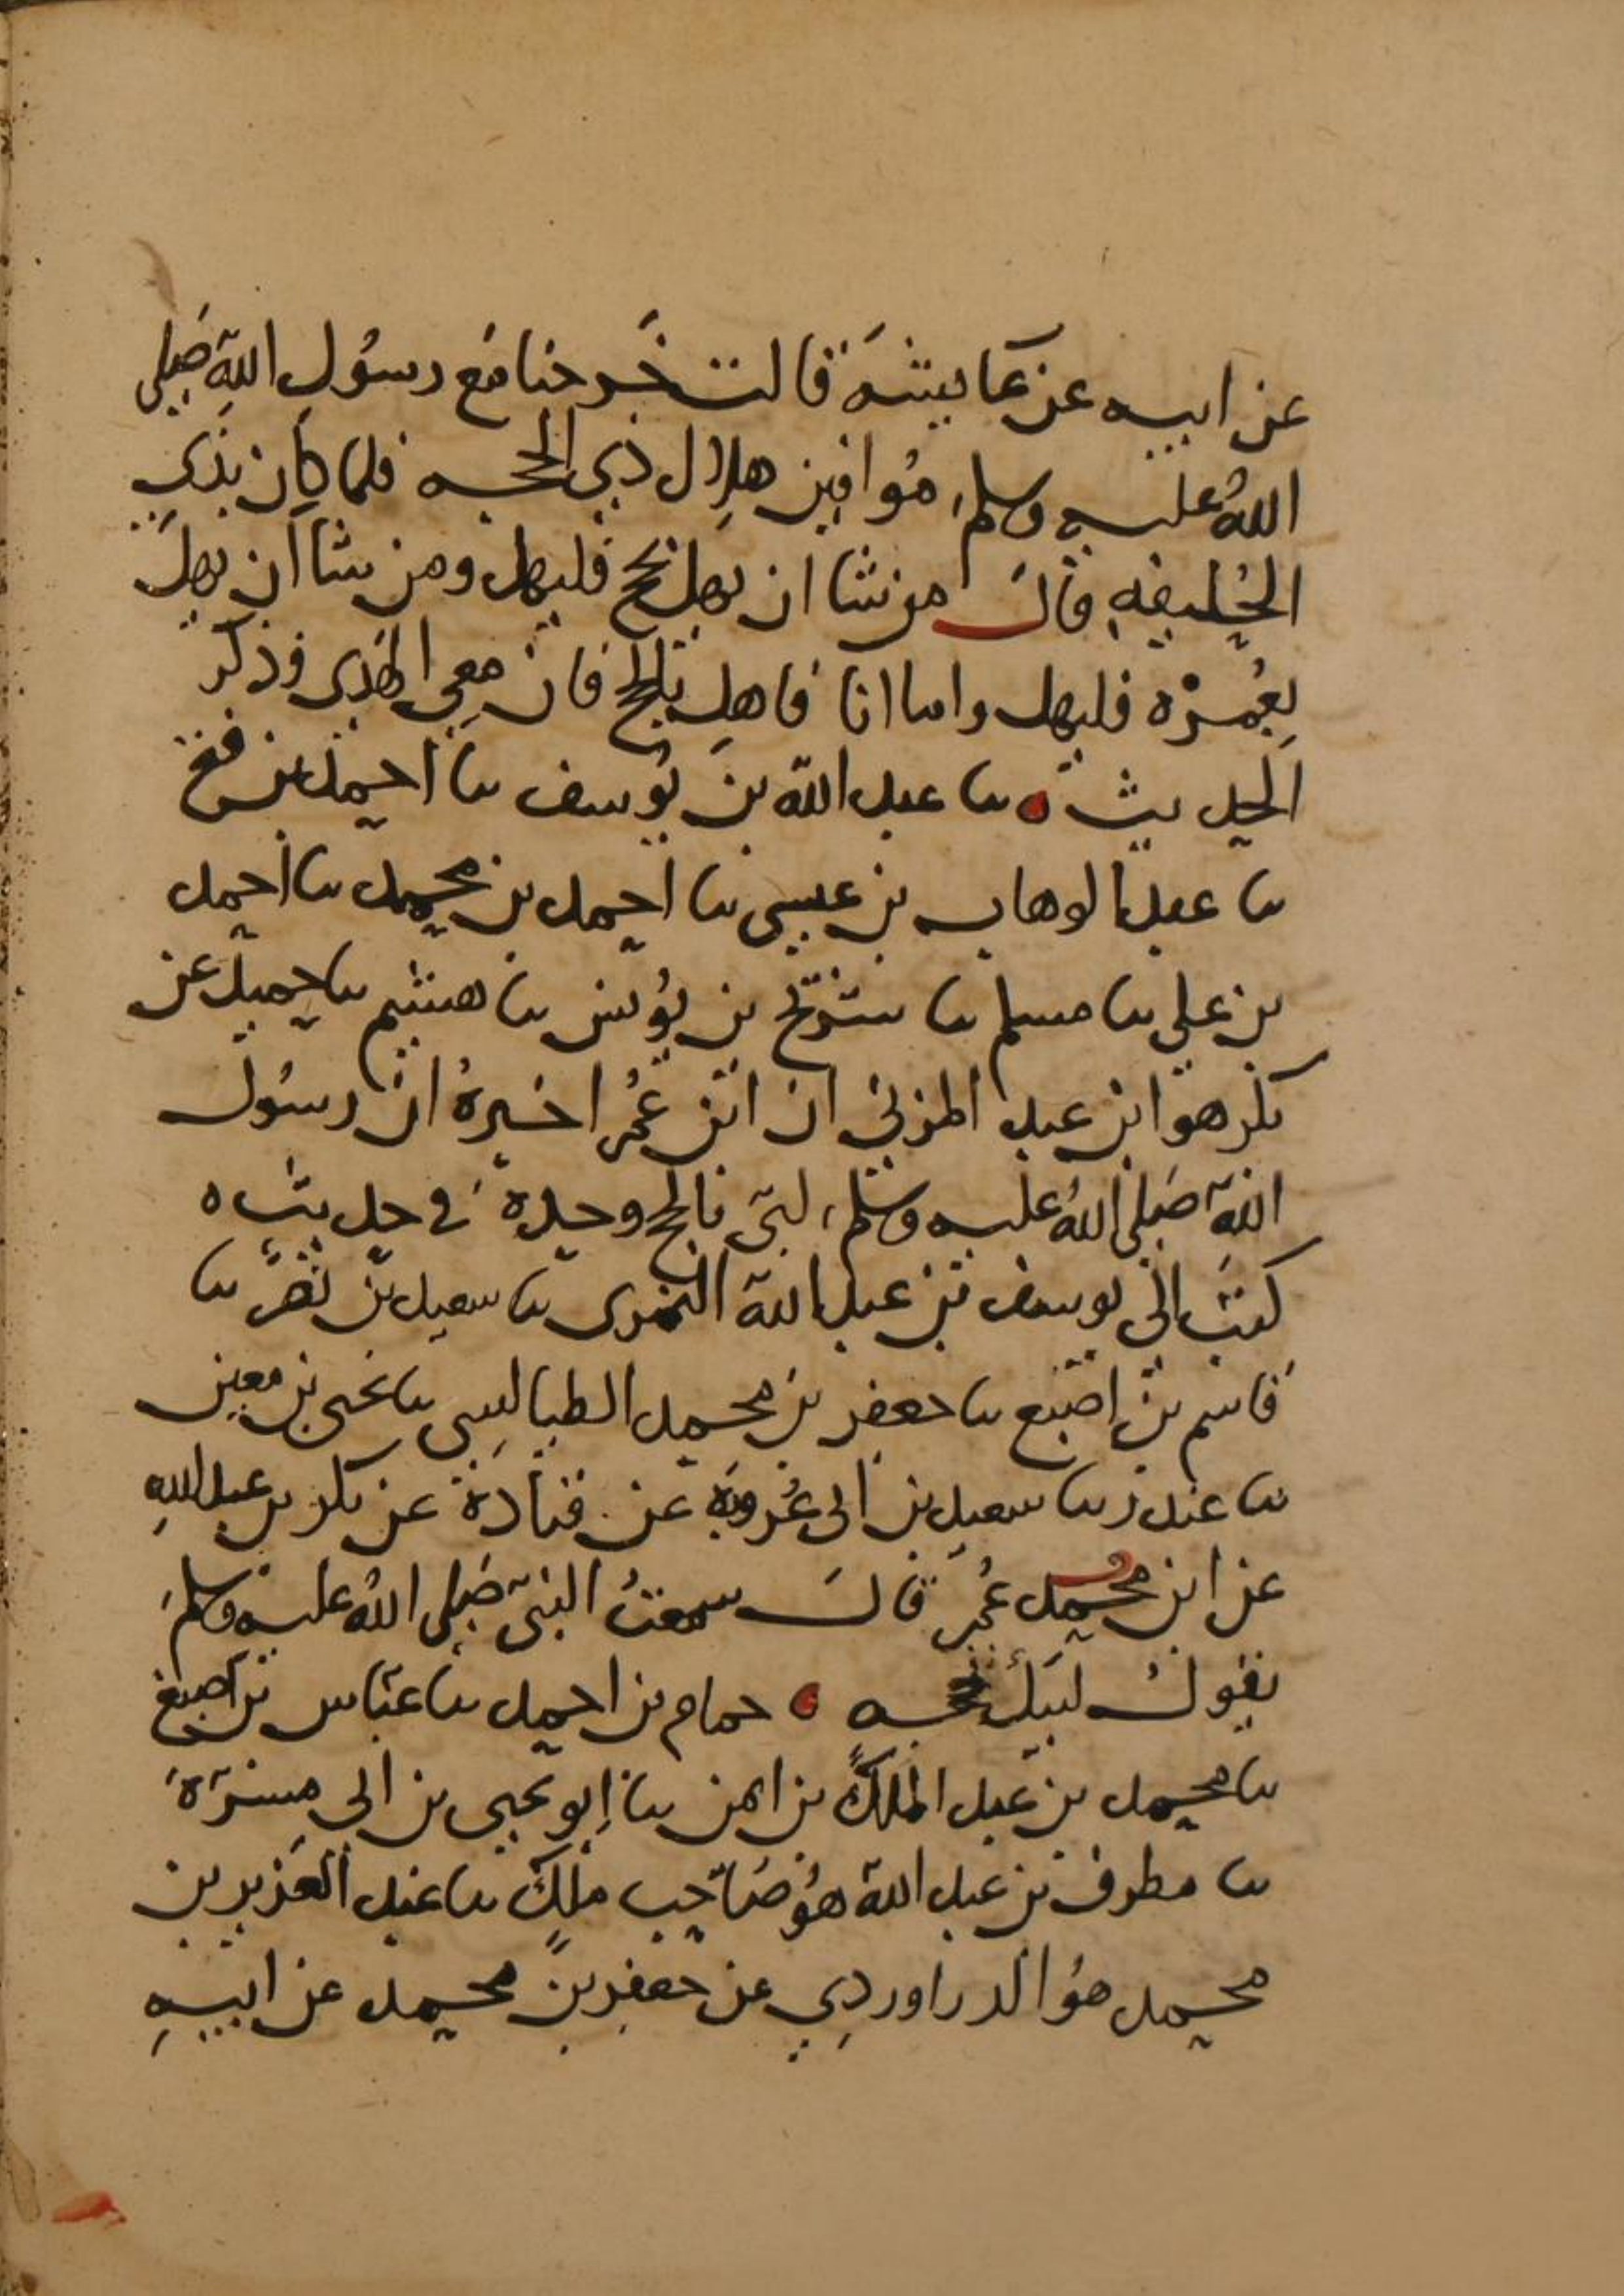 عن ابيه عن عايشة قالت خرجنا مع رسول الله صلى
الله عليه وسلم موافين هلال ذي الحجه فلما كان بذي
الحليفه قال من شا ان يهل بحج فليهل ومن شا ان يهل
بعمرة فليهل واما انا فاهل بالحج فان معي الهدى وذكر
الحديث ثنا عبد الله بن يوسف ثنا احمد بن فتح
ثنا عبد الوهاب بن عيسى ثنا احمد بن محمد ثنا احمد
بن علي ثنا مسلم ثنا سريج بن يونس ثنا هشيم ثنا حميد عن
بكر هو ابن عبد المزني ان ابن عمر اخبره ان رسول
الله صلى الله عليه وسلم لبى بالحج وحده في حديث ه
كتب الى يوسف بن عبد الله النمرى ثنا سعيد بن نصر ثنا
قاسم بن اصبغ ثنا جعفر بن محمد الطيالسي ثنا يحيى بن معين
ثنا غندر ثنا سعيد بن ابى عروبة عن قتادة عن بكر بن عبد الله
عن ابن محمد عمر قال سمعت النبي صلى الله عليه وسلم
يقول لبيك بحجه حمام بن احمد ثنا عباس بن اصبغ
ثنا محمد بن عبد الملك بن ايمن ثنا ابو يحيى بن ابى مسرة
ثنا مطرف بن عبد الله هو صاحب ملك ثنا عبد العزيز بن
محمد هو الدراوردي عن جعفر بن محمد عن ابيه